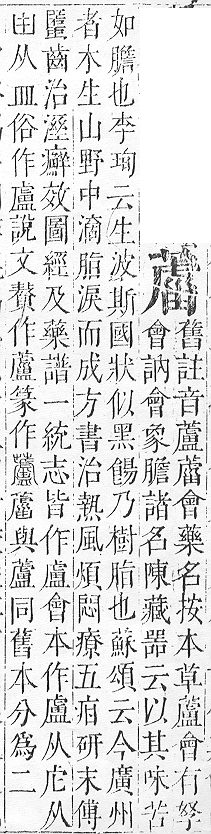 舊註音蘆會藥名按本草蘆會有孥
會訥會象膽諸名陳藏噐云以其味苦
如膽也李珣云生波斯國狀似黑餳乃樹脂也蘇頌云今廣州
者木生山野中滴脂淚而成方書治熱風煩悶療五疳研末傅
䘌齒治溼癬效圖經及藥譜一統志皆作盧會本作盧从虍从
从皿俗作盧說文贅作蘆篆作與蘆同舊本分爲二